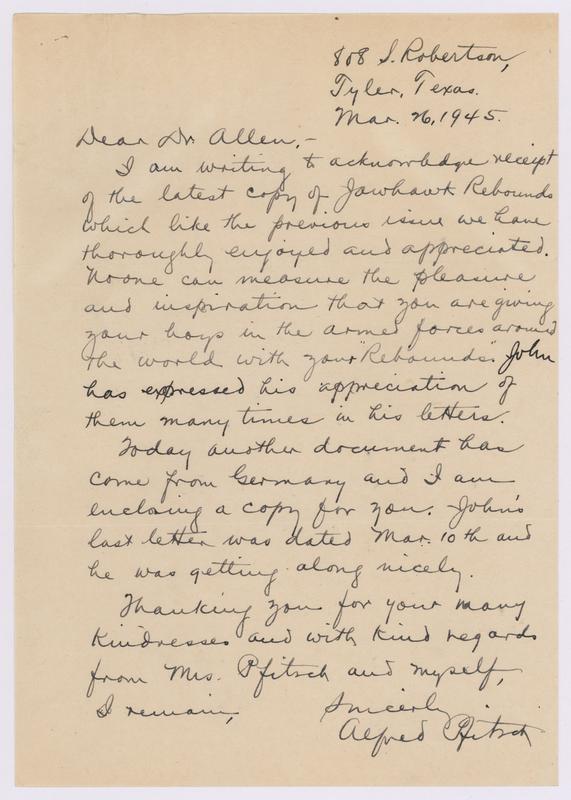 808 S. Robertson,
Tyler, Texas.
Mar. 26, 1945.
Dear Dr. Allen,-
I am writing to acknowledge receipt
of the latest copy of Jawhawk Rebounds
which like the previous issue we have
thoroughly enjoyed and appreciated.
No one can measure the pleasure
and inspiration that you are giving
your boys in the armed forces around
the world with your "Rebounds". John
has expressed his appreciation of
them many times in his letters.
Today another document has
come from Germany and I am
enclosing a copy for you. John's
last letter was dated Mar. 10th and
he was getting along nicely.
Thanking you for your many
kindnesses and with kind regards
from Mrs. Pfitsch and myself,
I remain,
Sincerely
Alfred Pfitsch